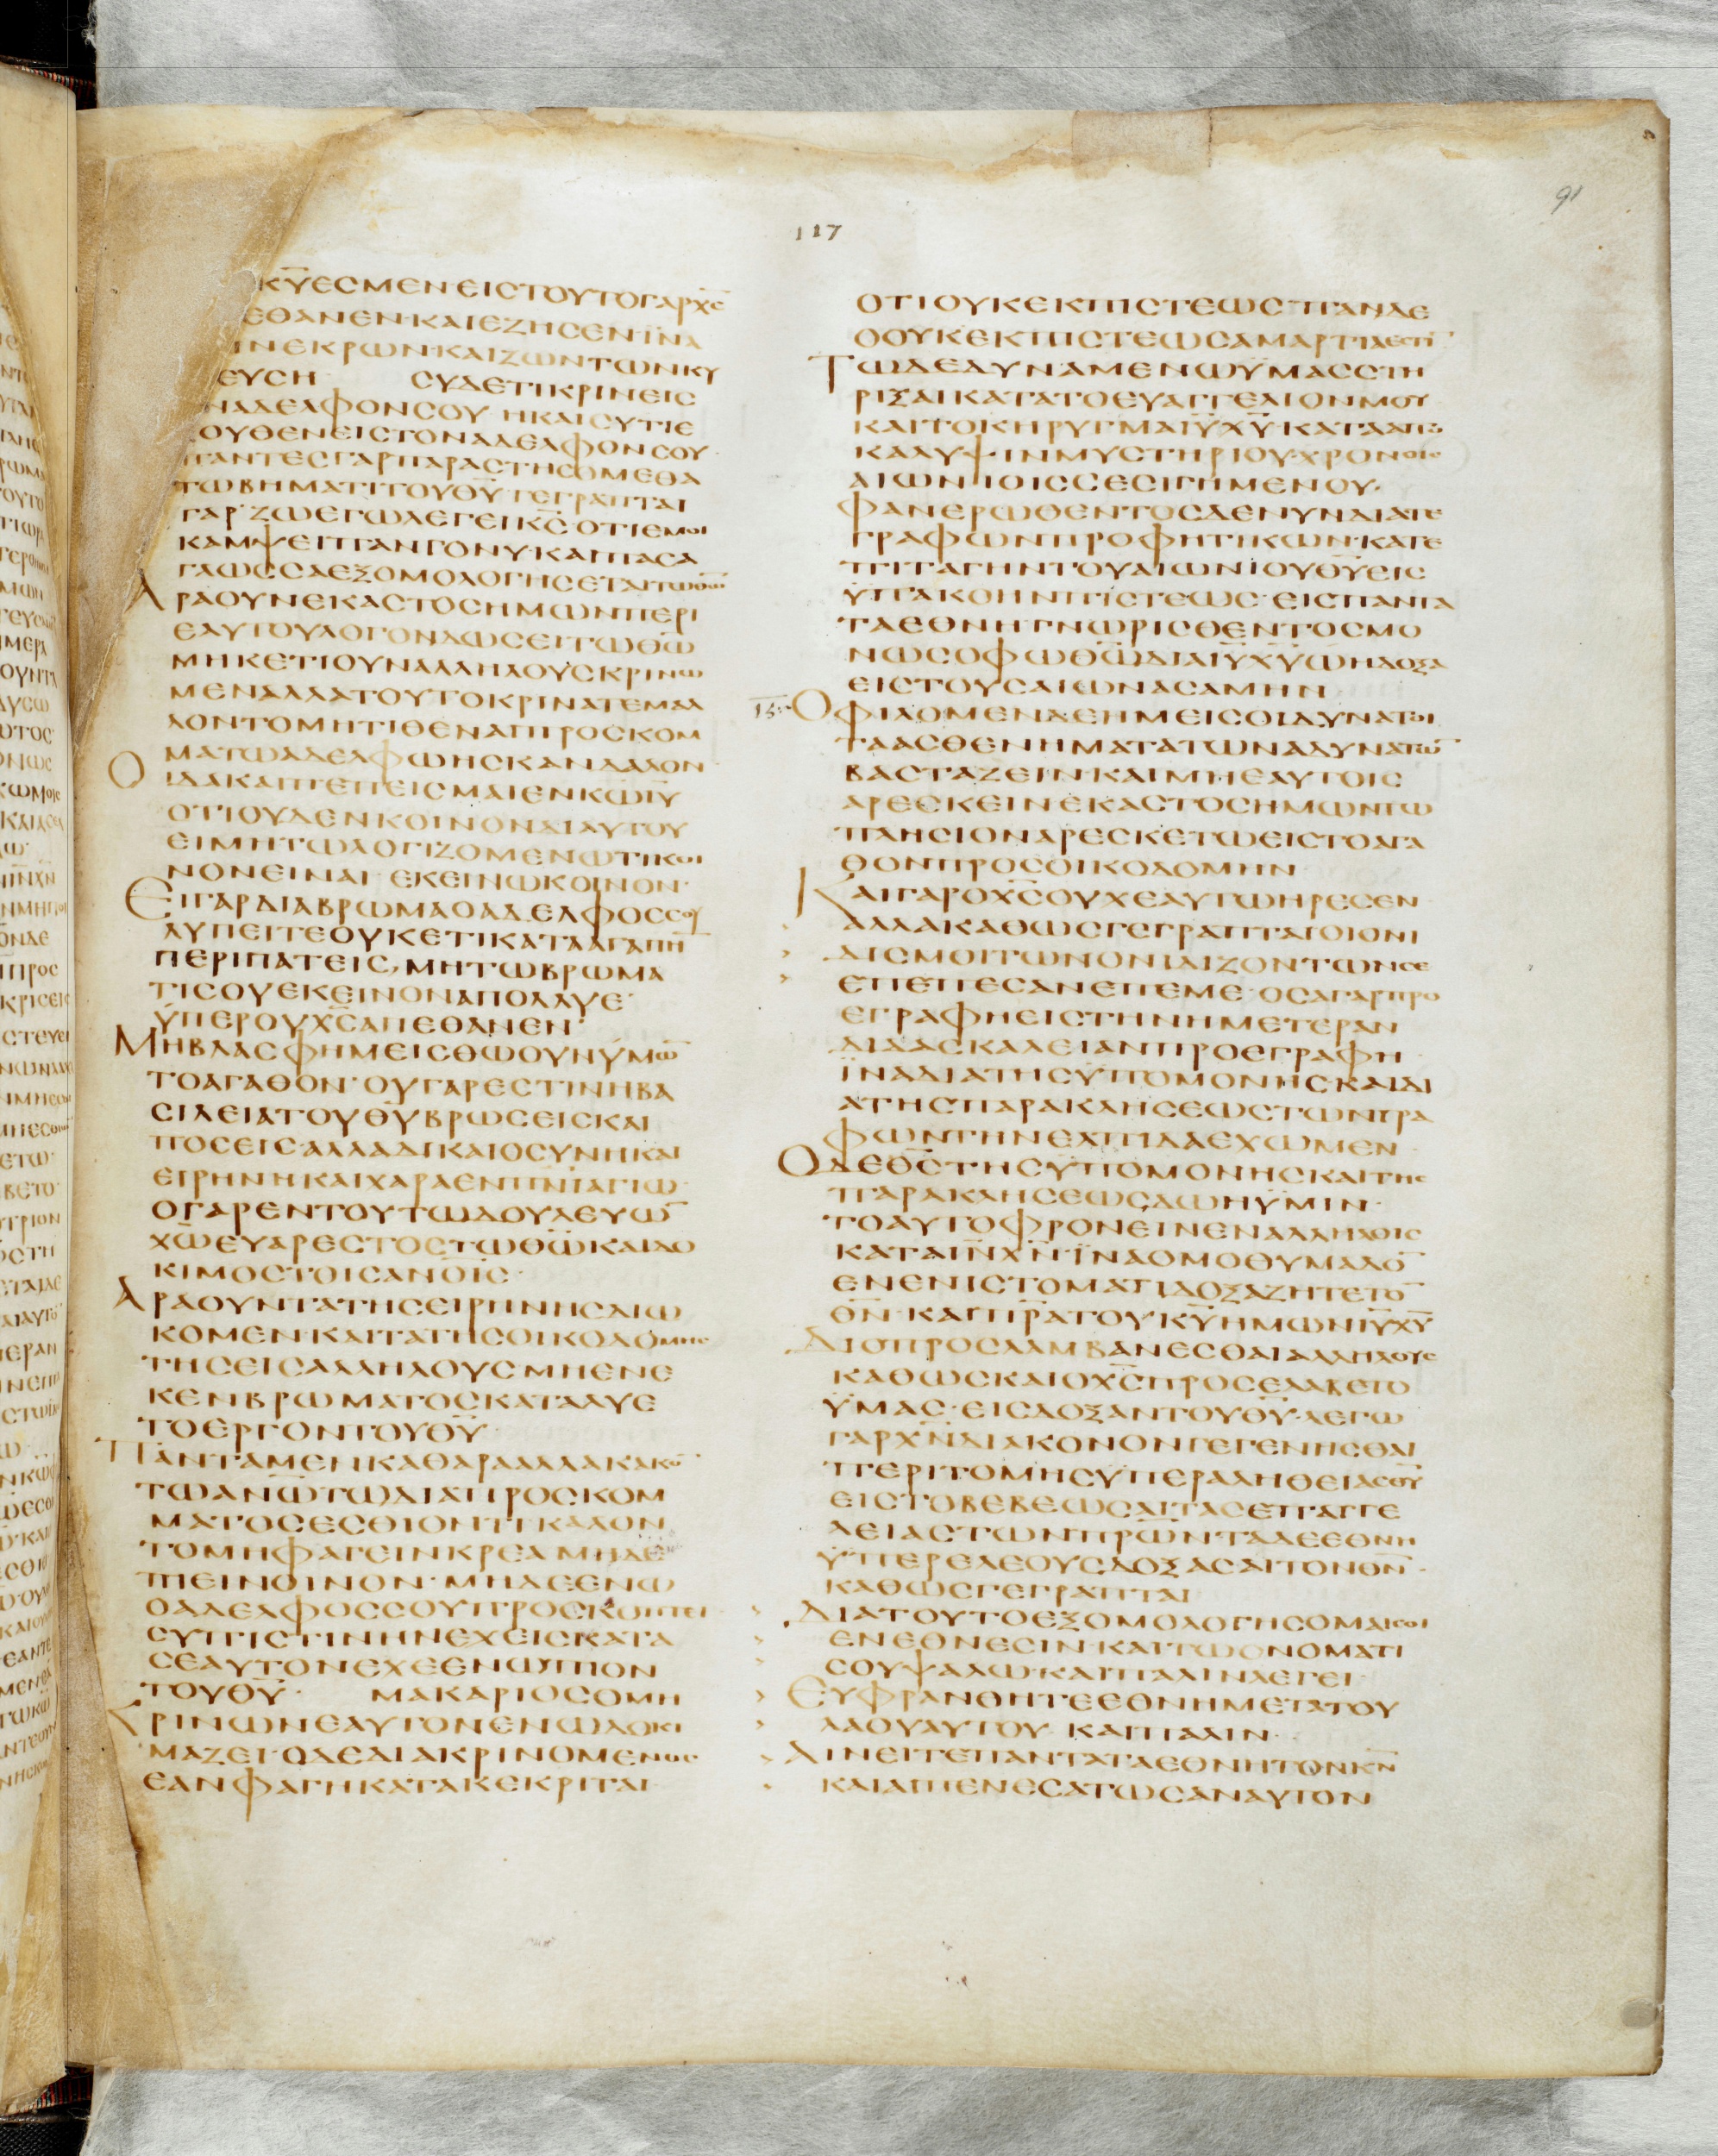 91
117
ΚΥ̅ΕCΜΕΝΕΙCΤΟΥΤΟΓΑΡΧ̅C̅
ΕΘΑΝΕΝ·ΚΑΙΕΖΗCΕΝ·ΙΝΑ
ΙΝΕΚΡΩΝ·ΚΑΙΖΩΝΤΩΝΚΥ
ΕΥCΗ CΥΔΕΤΙΚΡΙΝΕΙC
ΝΑΔΕΛΦΟΝCΟΥ·ΗΚΑΙCΥΤΙΕ
ΟΥΘΕΝΕΙCΤΟΝΑΔΕΛΦΟΝCΟΥ·
ΠΑΝΤΕCΓΑΡΠΑΡΑCΤΗCΟΜΕΘΑ
ΤΩΒΗΜΑΤΙΤΟΥΘ̅Υ̅·ΓΕΓΡΑΠΤΑΙ
ΓΑΡ·ΖΩΕΓΩΛΕΓΕΙΚ̅C̅·ΟΤΙΕΜΟΙ
ΚΑΜΨΕΙΠΑΝΓΟΝΥ·ΚΑΙΠΑCΑ
ΓΛΩCCΑΕΞΟΜΟΛΟΓΗCΕΤΑΙΤΩΘ̅Ω̅
ΑΡΑΟΥΝΕΚΑCΤΟCΗΜΩΝΠΕΡΙ
ΕΑΥΤΟΥΛΟΓΟΝΔΩCΕΙΤΩΘ̅Ω̅
ΜΗΚΕΤΙΟΥΝΑΛΛΗΛΟΥCΚΡΙΝΩ
ΜΕΝΑΛΛΑΤΟΥΤΟΚΡΙΝΑΤΕΜΑΛ
ΛΟΝΤΟΜΗΤΙΘΕΝΑΙΠΡΟCΚΟΜ
ΜΑΤΩΑΔΕΛΦΩΗCΚΑΝΔΑΛΟΝ
ΟΙΔΑΚΑΙΠΕΠΕΙCΜΑΙΕΝΚ̅Ω̅Ι̅Υ̅
ΟΤΙΟΥΔΕΝΚΟΙΝΟΝΔΙΑΥΤΟΥ
ΕΙΜΗΤΩΛΟΓΙΖΟΜΕΝΩΤΙΚΟΙ
ΝΟΝΕΙΝΑΙ·ΕΚΕΙΝΩΚΟΙΝΟΝ·
ΕΙΓΑΡΔΙΑΒΡΩΜΑΟΑΔΕΛΦΟCCΟΥ
ΛΥΠΕΙΤΕΟΥΚΕΤΙΚΑΤΑΑΓΑΠΗ̅
ΠΕΡΙΠΑΤΕΙC,ΜΗΤΩΒΡΩΜΑ
ΤΙCΟΥΕΚΕΙΝΟΝΑΠΟΛΛΥΕ·
ΫΠΕΡΟΥΧ̅C̅ΑΠΕΘΑΝΕΝ·
ΜΗΒΛΑCΦΗΜΕΙCΘΩΟΥΝΫΜΩ̅
ΤΟΑΓΑΘΟΝ·ΟΥΓΑΡΕCΤΙΝΗΒΑ
CΙΛΕΙΑΤΟΥΘ̅Υ̅ΒΡΩCΕΙCΚΑΙ
ΠΟCΕΙC·ΑΛΛΑΔΙΚΑΙΟCΥΝΗΚΑΙ
ΕΙΡΗΝΗΚΑΙΧΑΡΑΕΝΠ̅Ν̅Ι̅ΑΓΙΩ·
ΟΓΑΡΕΝΤΟΥΤΩΔΟΥΛΕΥΩ̅
Χ̅Ω̅ΕΥΑΡΕCΤΟCΤΩΘ̅Ω̅ΚΑΙΔΟ
ΚΙΜΟCΤΟΙCΑΝ̅Ο̅Ι̅C̅·
ΑΡΑΟΥΝΤΑΤΗCΕΙΡΗΝΗCΔΙΩ
ΚΟΜΕΝ·ΚΑΙΤΑΤΗCΟΙΚΟΔΟΜΗC
ΤΗCΕΙCΑΛΛΗΛΟΥCΜΗΕΝΕ
ΚΕΝΒΡΩΜΑΤΟCΚΑΤΑΛΥΕ
ΤΟΕΡΓΟΝΤΟΥΘ̅Υ̅·
ΠΑΝΤΑΜΕΝΚΑΘΑΡΑΑΛΛΑΚΑΚΟ̅
ΤΩΑΝ̅Ω̅ΤΩΔΙΑΠΡΟCΚΟΜ
ΜΑΤΟCΕCΘΙΟΝΤΙΚΑΛΟΝ
ΤΟΜΗΦΑΓΕΙΝΚΡΕΑ·ΜΗΔΕ
ΠΕΙΝΟΙΝΟΝ·ΜΗΔΕΕΝΩ
ΟΑΔΕΛΦΟCCΟΥΠΡΟCΚΟΠΤΕΙ
CΥΠΙCΤΙΝΗΝΕΧΕΙCΚΑΤΑ
CΕΑΥΤΟΝΕΧΕΕΝΩΠΙΟΝ
ΤΟΥΘ̅Υ̅· ΜΑΚΑΡΙΟCΟΜΗ
ΚΡΙΝΩΝΕΑΥΤΟΝΕΝΩΔΟΚΙ
ΜΑΖΕΙ·ΟΔΕΔΙΑΚΡΙΝΟΜΕΝΟC
ΕΑΝΦΑΓΗΚΑΤΑΚΕΚΡΙΤΑΙ·
ΟΤΙΟΥΚΕΚΠΙCΤΕΩC·ΠΑΝΔΕ
ΟΟΥΚΕΚΠΙCΤΕΩCΑΜΑΡΤΙΑΕCΤΙ̅
ΤΩΔΕΔΥΝΑΜΕΝΩΫΜΑCCΤΗ
ΡΙΞΑΙΚΑΤΑΤΟΕΥΑΓΓΕΛΙΟΝΜΟΥ
ΚΑΙΤΟΚΗΡΥΓΜΑΙ̅Υ̅Χ̅Υ̅ΚΑΤΑΑΠΟ
ΚΑΛΥΨΙΝΜΥCΤΗΡΙΟΥΧΡΟΝΟΙC
ΑΙΩΝΙΟΙCCΕCΙΓΗΜΕΝΟΥ·
ΦΑΝΕΡΩΘΕΝΤΟCΔΕΝΥΝΔΙΑΤΕ
ΓΡΑΦΩΝΠΡΟΦΗΤΙΚΩΝ·ΚΑΤΕ
ΠΙΤΑΓΗΝΤΟΥΑΙΩΝΙΟΥΘ̅Υ̅ΕΙC
ΫΠΑΚΟΗΝΠΙCΤΕΩC·ΕΙCΠΑΝΤΑ
ΤΑΕΘΝΗΓΝΩΡΙCΘΕΝΤΟCΜΟ
ΝΩCΟΦΩΘ̅Ω̅ΔΙΑΙ̅Υ̅Χ̅Υ̅ΩΗΔΟΞΑ
ΕΙCΤΟΥCΑΙΩΝΑCΑΜΗΝ
15· ΟΦΙΛΟΜΕΝΔΕΗΜΕΙCΟΙΔΥΝΑΤΟΙ
ΤΑΑCΘΕΝΗΜΑΤΑΤΩΝΑΔΥΝΑΤΩ̅
ΒΑCΤΑΖΕΙΝ·ΚΑΙΜΗΕΑΥΤΟΙC
ΑΡΕCΚΕΙΝΕΚΑCΤΟCΗΜΩΝΤΩ
ΠΛΗCΙΟΝΑΡΕCΚΕΤΩΕΙCΤΟΑΓΑ
ΘΟΝΠΡΟCΟΙΚΟΔΟΜΗΝ·
ΚΑΙΓΑΡΟΧ̅C̅ΟΥΧΕΑΥΤΩΗΡΕCΕΝ
ΑΛΛΑΚΑΘΩCΓΕΓΡΑΠΤΑΙΟΙΟΝΙ
ΔΙCΜΟΙΤΩΝΟΝΙΔΙΖΟΝΤΩΝCΕ
ΕΠΕΠΕCΑΝΕΠΕΜΕ·ΟCΑΓΑΡΠΡΟ
ΕΓΡΑΦΗΕΙCΤΗΝΗΜΕΤΕΡΑΝ
ΔΙΔΑCΚΑΛΕΙΑΝΠΡΟΕΓΡΑΦΗ·
ΪΝΑΔΙΑΤΗCΫΠΟΜΟΝΗCΚΑΙΔΙ
ΑΤΗCΠΑΡΑΚΛΗCΕΩCΤΩΝΓΡΑ
ΦΩΝΤΗΝΕΛΠΙΔΑΕΧΩΜΕΝ·
ΟΔΕΘ̅C̅ΤΗCΫΠΟΜΟΝΗCΚΑΙΤΗC
ΠΑΡΑΚΛΗCΕΩCΔΩΗΫΜΙΝ·
ΤΟΑΥΤΟΦΡΟΝΕΙΝΕΝΑΛΛΗΛΟΙC
ΚΑΤΑΙ̅Ν̅Χ̅Ν̅·ΪΝΑΟΜΟΘΥΜΑΔΟ̅
ΕΝΕΝΙCΤΟΜΑΤΙΔΟΞΑΖΗΤΕΤΟ̅
Θ̅Ν̅·ΚΑΙΠ̅Ρ̅Α̅ΤΟΥΚ̅Υ̅ΗΜΩΝΙ̅Υ̅Χ̅Υ̅
ΔΙΟΠΡΟCΛΑΜΒΑΝΕCΘΑΙΑΛΛΗΛΟΥC
ΚΑΘΩCΚΑΙΟΧ̅C̅ΠΡΟCΕΛΑΒΕΤΟ
ΫΜΑC·ΕΙCΔΟΞΑΝΤΟΥΘ̅Υ̅·ΛΕΓΩ
ΓΑΡΧ̅Ν̅ΔΙΑΚΟΝΟΝΓΕΓΕΝΗCΘΑΙ
ΠΕΡΙΤΟΜΗCΥΠΕΡΑΛΗΘΕΙΑCΘ̅Υ̅
ΕΙCΤΟΒΕΒΕΩCΑΙΤΑCΕΠΑΓΓΕ
ΛΕΙΑCΤΩΝΠ̅Ρ̅Ω̅Ν̅·ΤΑΔΕΕΘΝΗ
ΫΠΕΡΕΛΕΟΥCΔΟΞΑCΑΙΤΟΝΘ̅Ν̅·
ΚΑΘΩCΓΕΓΡΑΠΤΑΙ
ΔΙΑΤΟΥΤΟΕΞΟΜΟΛΟΓΗCΟΜΑΙCΟΙ
ΕΝΕΘΝΕCΙΝ·ΚΑΙΤΩΟΝΟΜΑΤΙ
CΟΥΨΑΛΩ·ΚΑΙΠΑΛΙΝΛΕΓΕΙ·
ΕΥΦΡΑΝΘΗΤΕΕΘΝΗΜΕΤΑΤΟΥ
ΛΑΟΥΑΥΤΟΥ·ΚΑΙΠΑΛΙΝ·
ΑΙΝΕΙΤΕΠΑΝΤΑΤΑΕΘΝΗΤΟΝΚ̅Ν̅
ΚΑΙΑΙΠΕΝΕCΑΤΩCΑΝΑΥΤΟΝ